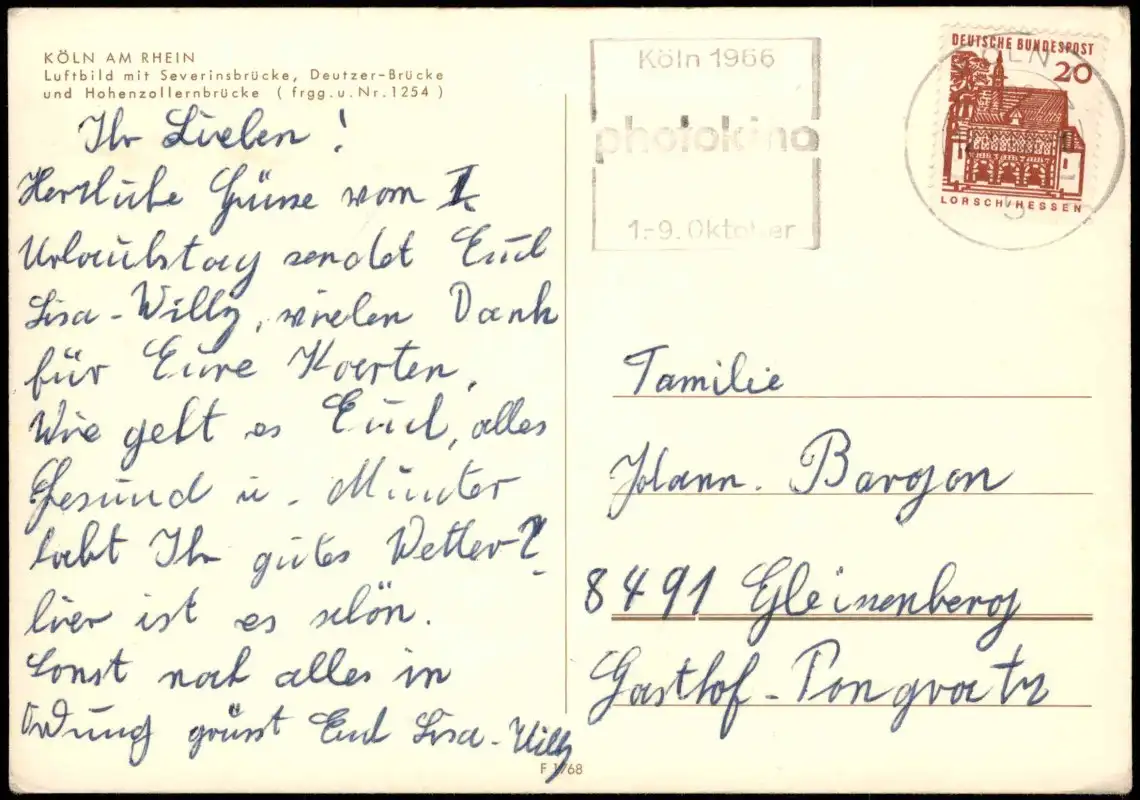 KÖLN AM RHEIN
Luftbild mit Severinsbrücke, Deutzer-Brücke
und Hohenzollernbrücke ( frgg. u. Nr. 1254 )
Ihr Lieben !
Herzliche Grüsse vom I.
Urlaubstag sendet Euch
Lisa - Willy, vielen Dank
für Eure Kaarten,
Wie geht es Euch, alles
Gesund u. Munter
habt Ihr gutes Wetter?
hier ist es schön.
Sonst noch alles in
Ordung grüsst Euch Lisa - Willy
Köln 1966
photokina
1.-9. Oktober
DEUTSCHE BUNDESPOST
20
LORSCH/HESSEN
KÖLN
Familie
Johann. Bargon
8491 Gleissenberg
Gasthof - Pongratz
F 1/68